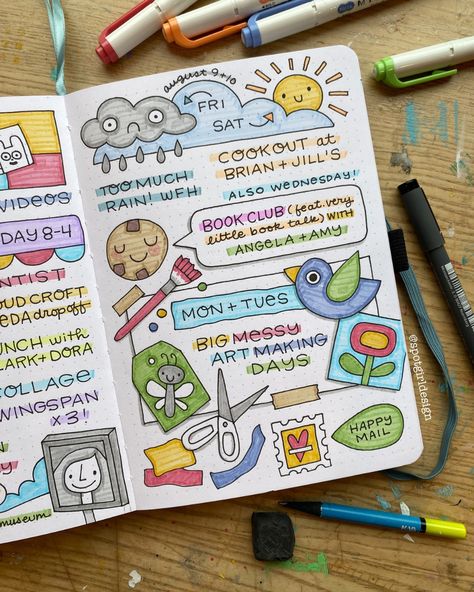 VIDEOS
DAY 8-4
NTIST
OUD CROFT
EDA dropoff
UNCH with
LARK + DORA
COLLAGE
WINGSPAN
x 3!
museum
august 9+10
FRI
SAT
TOO MUCH
RAIN! WFH
COOKOUT at
BRIAN + JILL'S
ALSO WEDNESDAY!
BOOK CLUB (feat. very
little book talk) WITH
ANGELA + AMY
MON + TUES
BIG MESSY
ART MAKING
DAYS
HAPPY
MAIL
@spotgirldesign